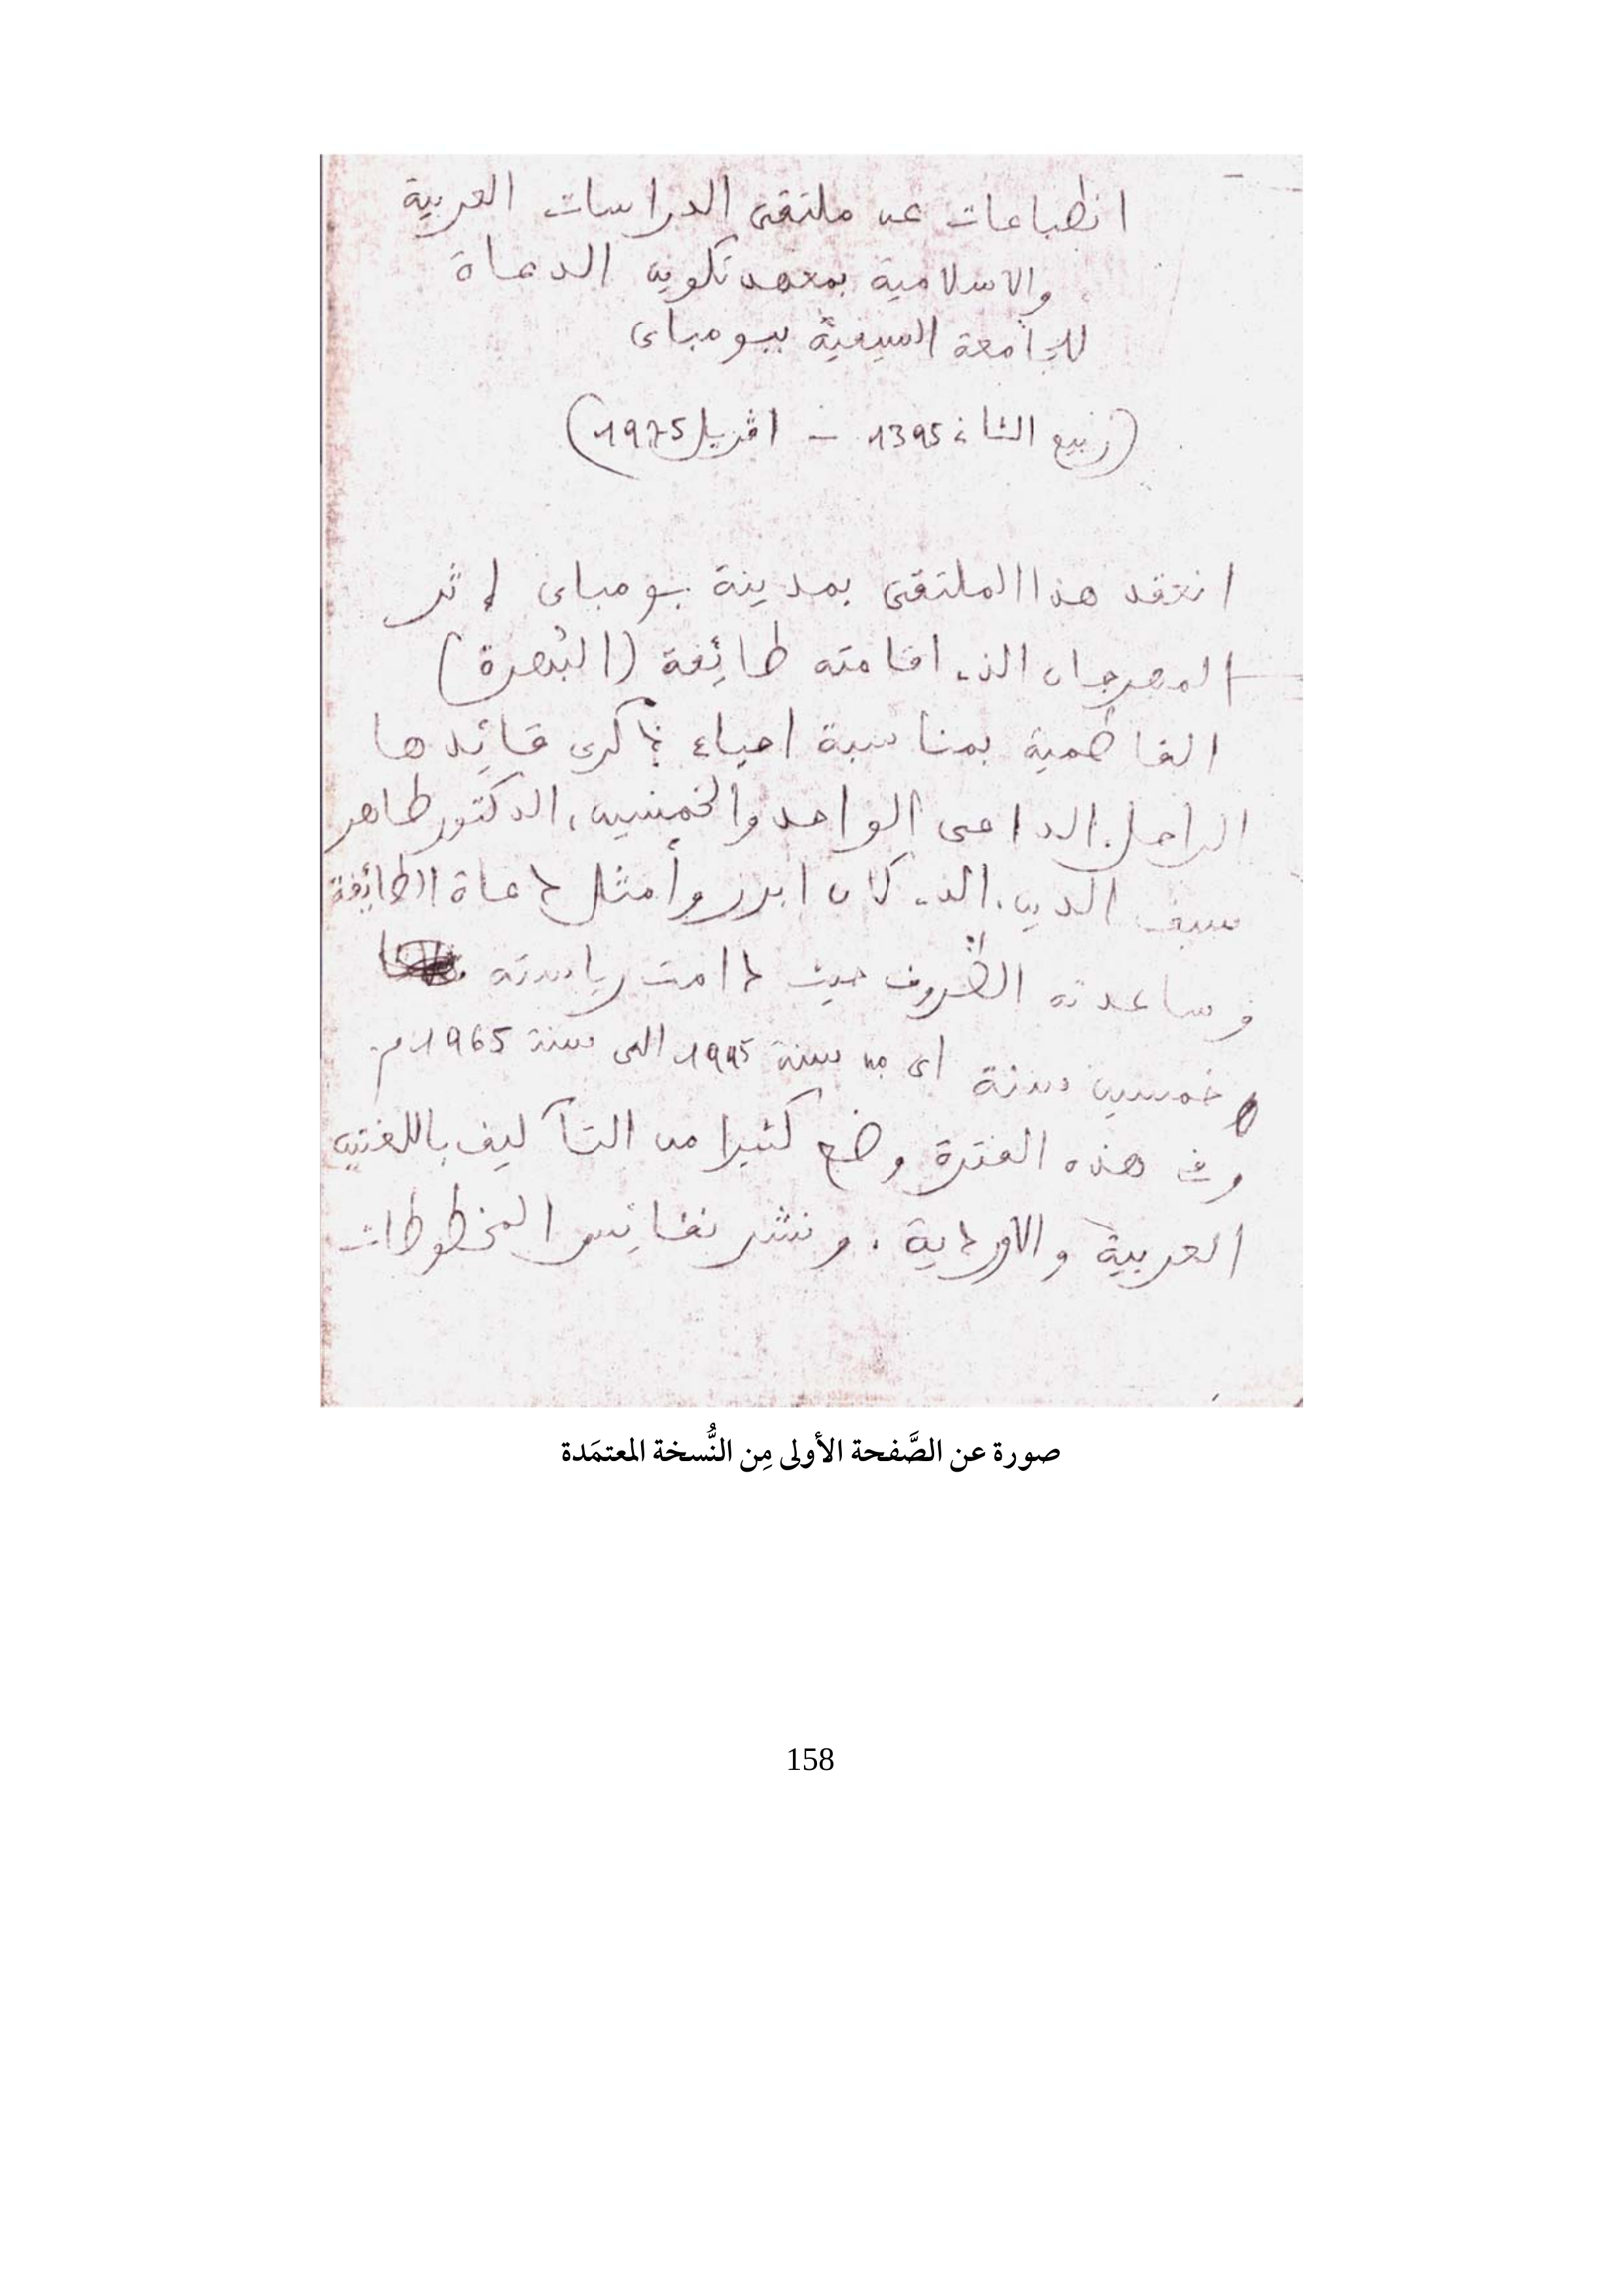 انطباعات عن ملتقى الدراسات العربية
والاسلامية بمعهد تكوين الدعاة
للجامعة السيفية ببومباى
(ربيع الثانى 1395 - افريل 1975)
انعقد هذا الملتقى بمدينة بومباى إثر
المهرجان الذى اقامته طائفة (البُهرة)
الفاطمية بمناسبة احياء ذكرى قائدها
الراحل الداعى الواحد والخمسين، الدكتور طاهر
سيف الدين. الذى كان ابرز وأمثل دعاة الطائفة
وساعدته الظروف حيث دامت رياسته
خمسين سنة اى من سنة الى سنة 1965 م.
وفى هذه الفترة وضع كثيرا من التآليف باللغتين
العربية والاوردية. ونشر نفائس المخطوطات
صورة عن الصَّفحة الأولى مِن النُّسخة المعتمَدة
158